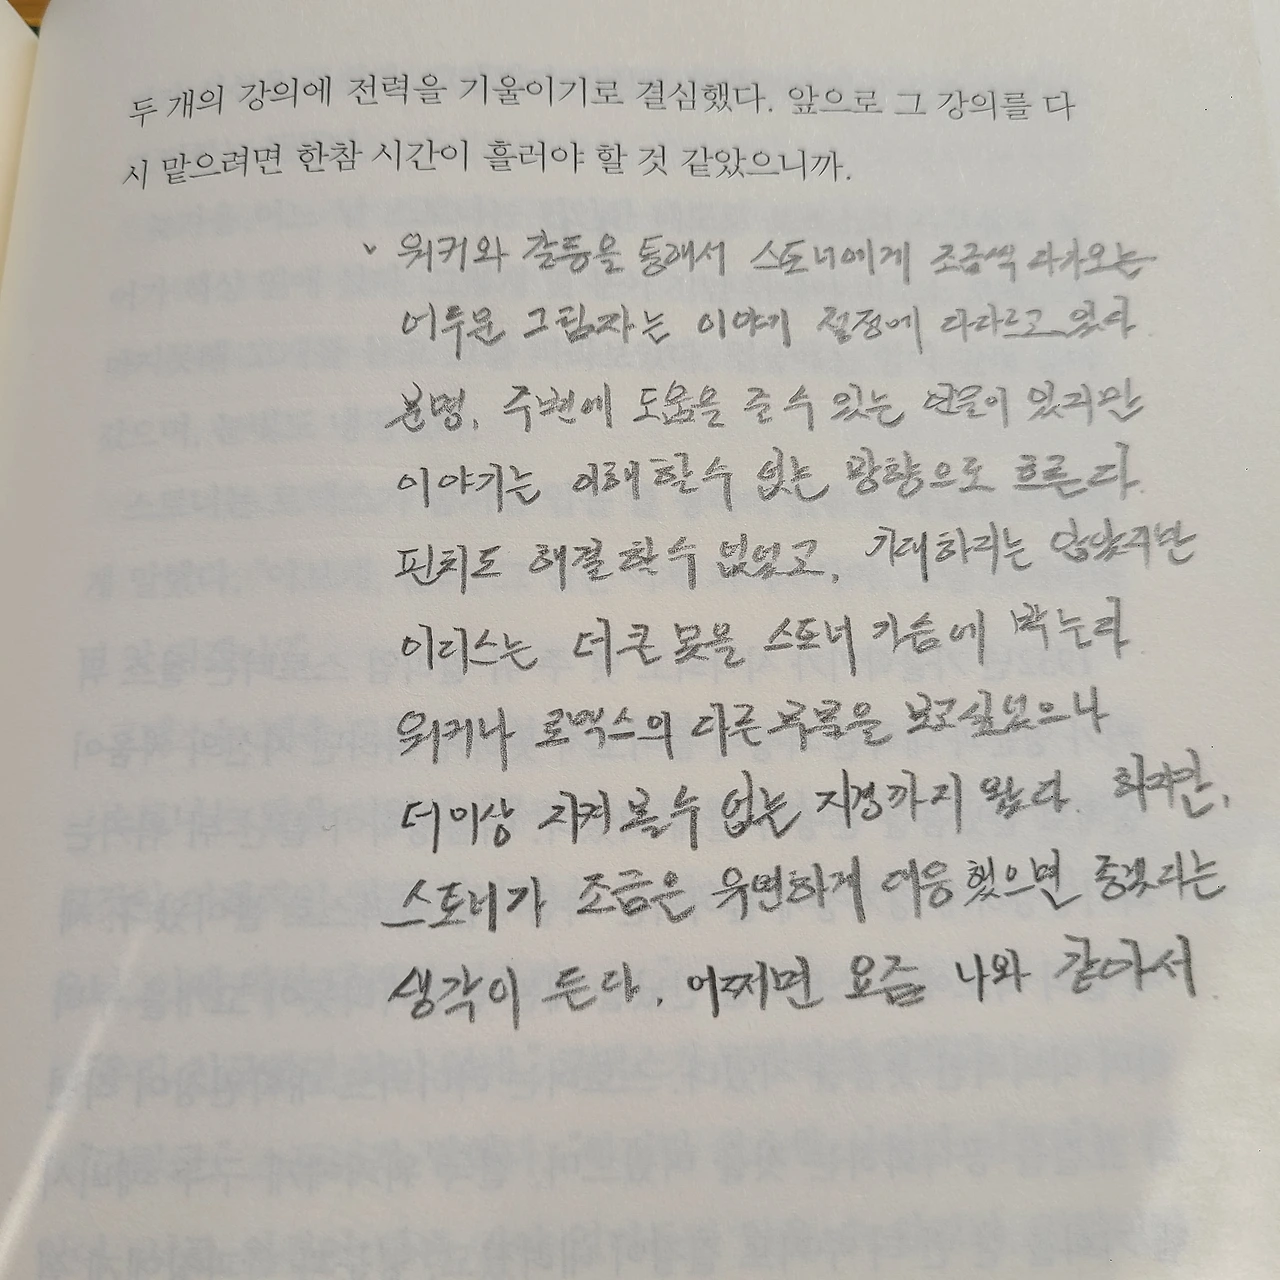 두 개의 강의에 전력을 기울이기로 결심했다. 앞으로 그 강의를 다
시 맡으려면 한참 시간이 흘러야 할 것 같았으니까.
워커와 갈등을 통해서 스토너에게 조금씩 다가오는
어두운 그림자는 이야기 절정에 다다르고 있다
분명, 주변에 도움을 줄 수 있는 인물이 있지만
이야기는 이해 할 수 없는 방향으로 흐른다.
핀치도 해결 할 수 없었고, 기대하지는 않았지만
이디스는 더 큰 못을 스토너 가슴에 박는다
워커나 로맥스의 다른 부분을 보고싶었으나
더이상 지켜 볼 수 없는 지경까지 왔다. 하지만,
스토너가 조금은 유연하게 대응했으면 좋겠다는
생각이 든다. 어쩌면 요즘 나와 같아서.